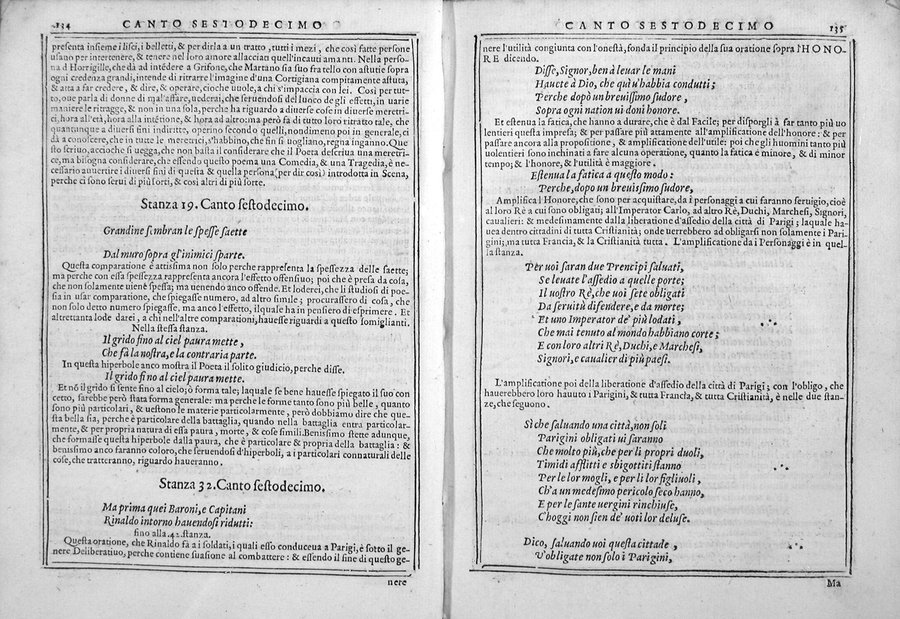 134 CANTO SESTODECIMO
presenta insieme i lisci, i belletti, & per dirla a un tratto, tutti i mezi, che così fatte persone
usano per intertenere, & tenere nel loro amore allacciati quell'incauti amanti. Nella perso-
na d'Horrigille, che dà ad intédere a Grifone, che Martano sia suo fratello con astutie sopra
ogni credenza grandi, intende di ritrarre l'imagine d'una Cortigiana compitamente astuta,
& atta a far credere, & dire, & operare, cioche uuole, a chi s'impaccia con lei. Così per tut-
to, oue parla di donne di mal'affare, uederai, che seruendosi del luoco de gli effetti, in uarie
maniere le ritragge, & non in una sola, perche ha riguardo a diuerse cose in diuerse meretri-
ci, hora all'età, hora alla intétione, & hora ad altro: ma però fa di tutto loro ritratto tale, che
quantunque a diuersi fini indiritte, operino secondo quelli, nondimeno poi in generale, ci
dà a conoscere, che in tutte le meretrici, s'habbino, che fin si uogliano, regna inganno. Que
sto scriuo, accioche si uegga, che non basta il considerare che il Poeta descriua una meretri-
ce, ma bisogna considerare, che essendo questo poema una Comedia, & una Tragedia, è ne-
cessario auuertire i diuersi fini di questa & quella persona (per dir così) introdotta in Scena,
perche ci sono serui di più sorti, & così altri di più sorte.
Stanza 19. Canto sestodecimo.
Grandine sembran le spesse saette
Dal muro sopra gl'inimici sparte.
Questa comparatione è attissima non solo perche rappresenta la spessezza delle saette;
ma perche con essa spessezza rappresenta ancora l'effetto offensiuo; poi che è presa da cosa,
che non solamente uiene spessa; ma uenendo anco offende. Et loderei, che li studiosi di poe-
sia in usar comparatione, che spiegasse numero, ad altro simile; procurassero di cosa, che
non solo detto numero spiegasse, ma anco l'effetto, il quale ha in pensiero di esprimere. Et
altrettanta lode darei, a chi nell'altre comparationi, hauesse riguardi a questo somiglianti.
Nella stessa stanza.
Il grido fino al ciel paura mette,
Che fà la nostra, e la contraria parte.
In questa hiperbole anco mostra il Poeta il solito giudicio, perche disse.
Il grido fino al ciel paura mette.
Et nõ il grido si sente fino al cielo; ò forma tale; laquale se bene hauesse spiegato il suo con
cetto, sarebbe però stata forma generale: ma perche le forme tanto sono più belle, quanto
sono più particolari, & uestono le materie particolarmente, però dobbiamo dire che que-
sta bella sia, perche è particolare della battaglia, quando nella battaglia entra particolar-
mente, & per propria natura di essa paura, morte, & cose simili. Benissimo stette adunque,
che formasse questa hiperbola dalla paura, che è particolare & propria della battaglia: &
benissimo anco faranno coloro, che seruendosi d'hiperboli, a i particolari connaturali delle
cose, che tratteranno, riguardo haueranno.
Stanza 32. Canto sestodecimo.
Ma prima quei Baroni, e Capitani
Rinaldo intorno hauendosi ridutti:
fino alla .42. stanza.
Questa oratione, che Rinaldo fà a i soldati, i quali esso conduceua a Parigi, è sotto il ge-
nere Deliberatiuo, perche contiene suasione al combattere: & essendo il fine di questo ge-
nere
CANTO SESTODECIMO 135
nere l'utilità congiunta con l'onestà, fonda il principio della sua oratione sopra l'HONO-
RE dicendo.
Disse, Signor, ben à leuar le mani
Hauete à Dio, che quì u'habbia condutti;
Perche dopò un breuissimo sudore,
Sopra ogni nation ui doni honore.
Et estenua la fatica, che hanno a durare, che è dal Facile; per disporgli à far tanto più uo
lentieri questa impresa; & per passare più attamente all'amplificatione dell'honore: & per
passare ancora alla propositione, & amplificatione dell'utile: poi che gli huomini tanto più
uolentieri sono inchinati a fare alcuna operatione, quanto la fatica è minore, & di minor
tempo; & l'honore, & l'utilità è maggiore.
Estenua la fatica a questo modo:
Perche, dopo un breuissimo sudore,
Amplifica l'Honore, che sono per acquistare, da i personaggi a cui faranno seruigio, cioè
al loro Rè a cui sono obligati; all'Imperator Carlo, ad altro Rè, Duchi, Marchesi, Signori,
caualieri: & medesimamente dalla liberatione d'assedio della città di Parigi; laquale ha-
uea dentro cittadini di tutta Cristianità; onde uerrebbero ad obligarsi non solamente i Pari-
gini; ma tutta Francia, & la Cristianità tutta. L'amplificatione da i Personaggi è in quel-
la stanza.
Per uoi saran due Prencipi saluati,
Se leuate l'assedio a quelle porte;
Il uostro Rè, che uoi sete obligati
Da seruitù difendere, e da morte;
Et uno Imperator de' più lodati,
Che mai tenuto al mondo habbiano corte;
E con loro altri Rè, Duchi, e Marchesi,
Signori, e caualier di più paesi.
L'amplificatione poi della liberatione d'assedio della città di Parigi, con l'obligo, che
hauerebbero loro hauuto i Parigini, & tutta Francia, & tutta Cristianità, è nelle due stan-
ze, che seguono.
Sì che saluando una città, non soli
Parigini obligati ui saranno
Che molto più, che per li propri duoli,
Timidi afflitti e sbigottiti stanno
Per le lor mogli, e per li lor figliuoli,
Ch'a un medesimo pericolo seco hanno,
E per le sante uergini rinchiuse,
C'hoggi non sien de' uoti lor deluse.
Dico, saluando uoi questa cittade,
V'obligate non solo i Parigini,
Ma